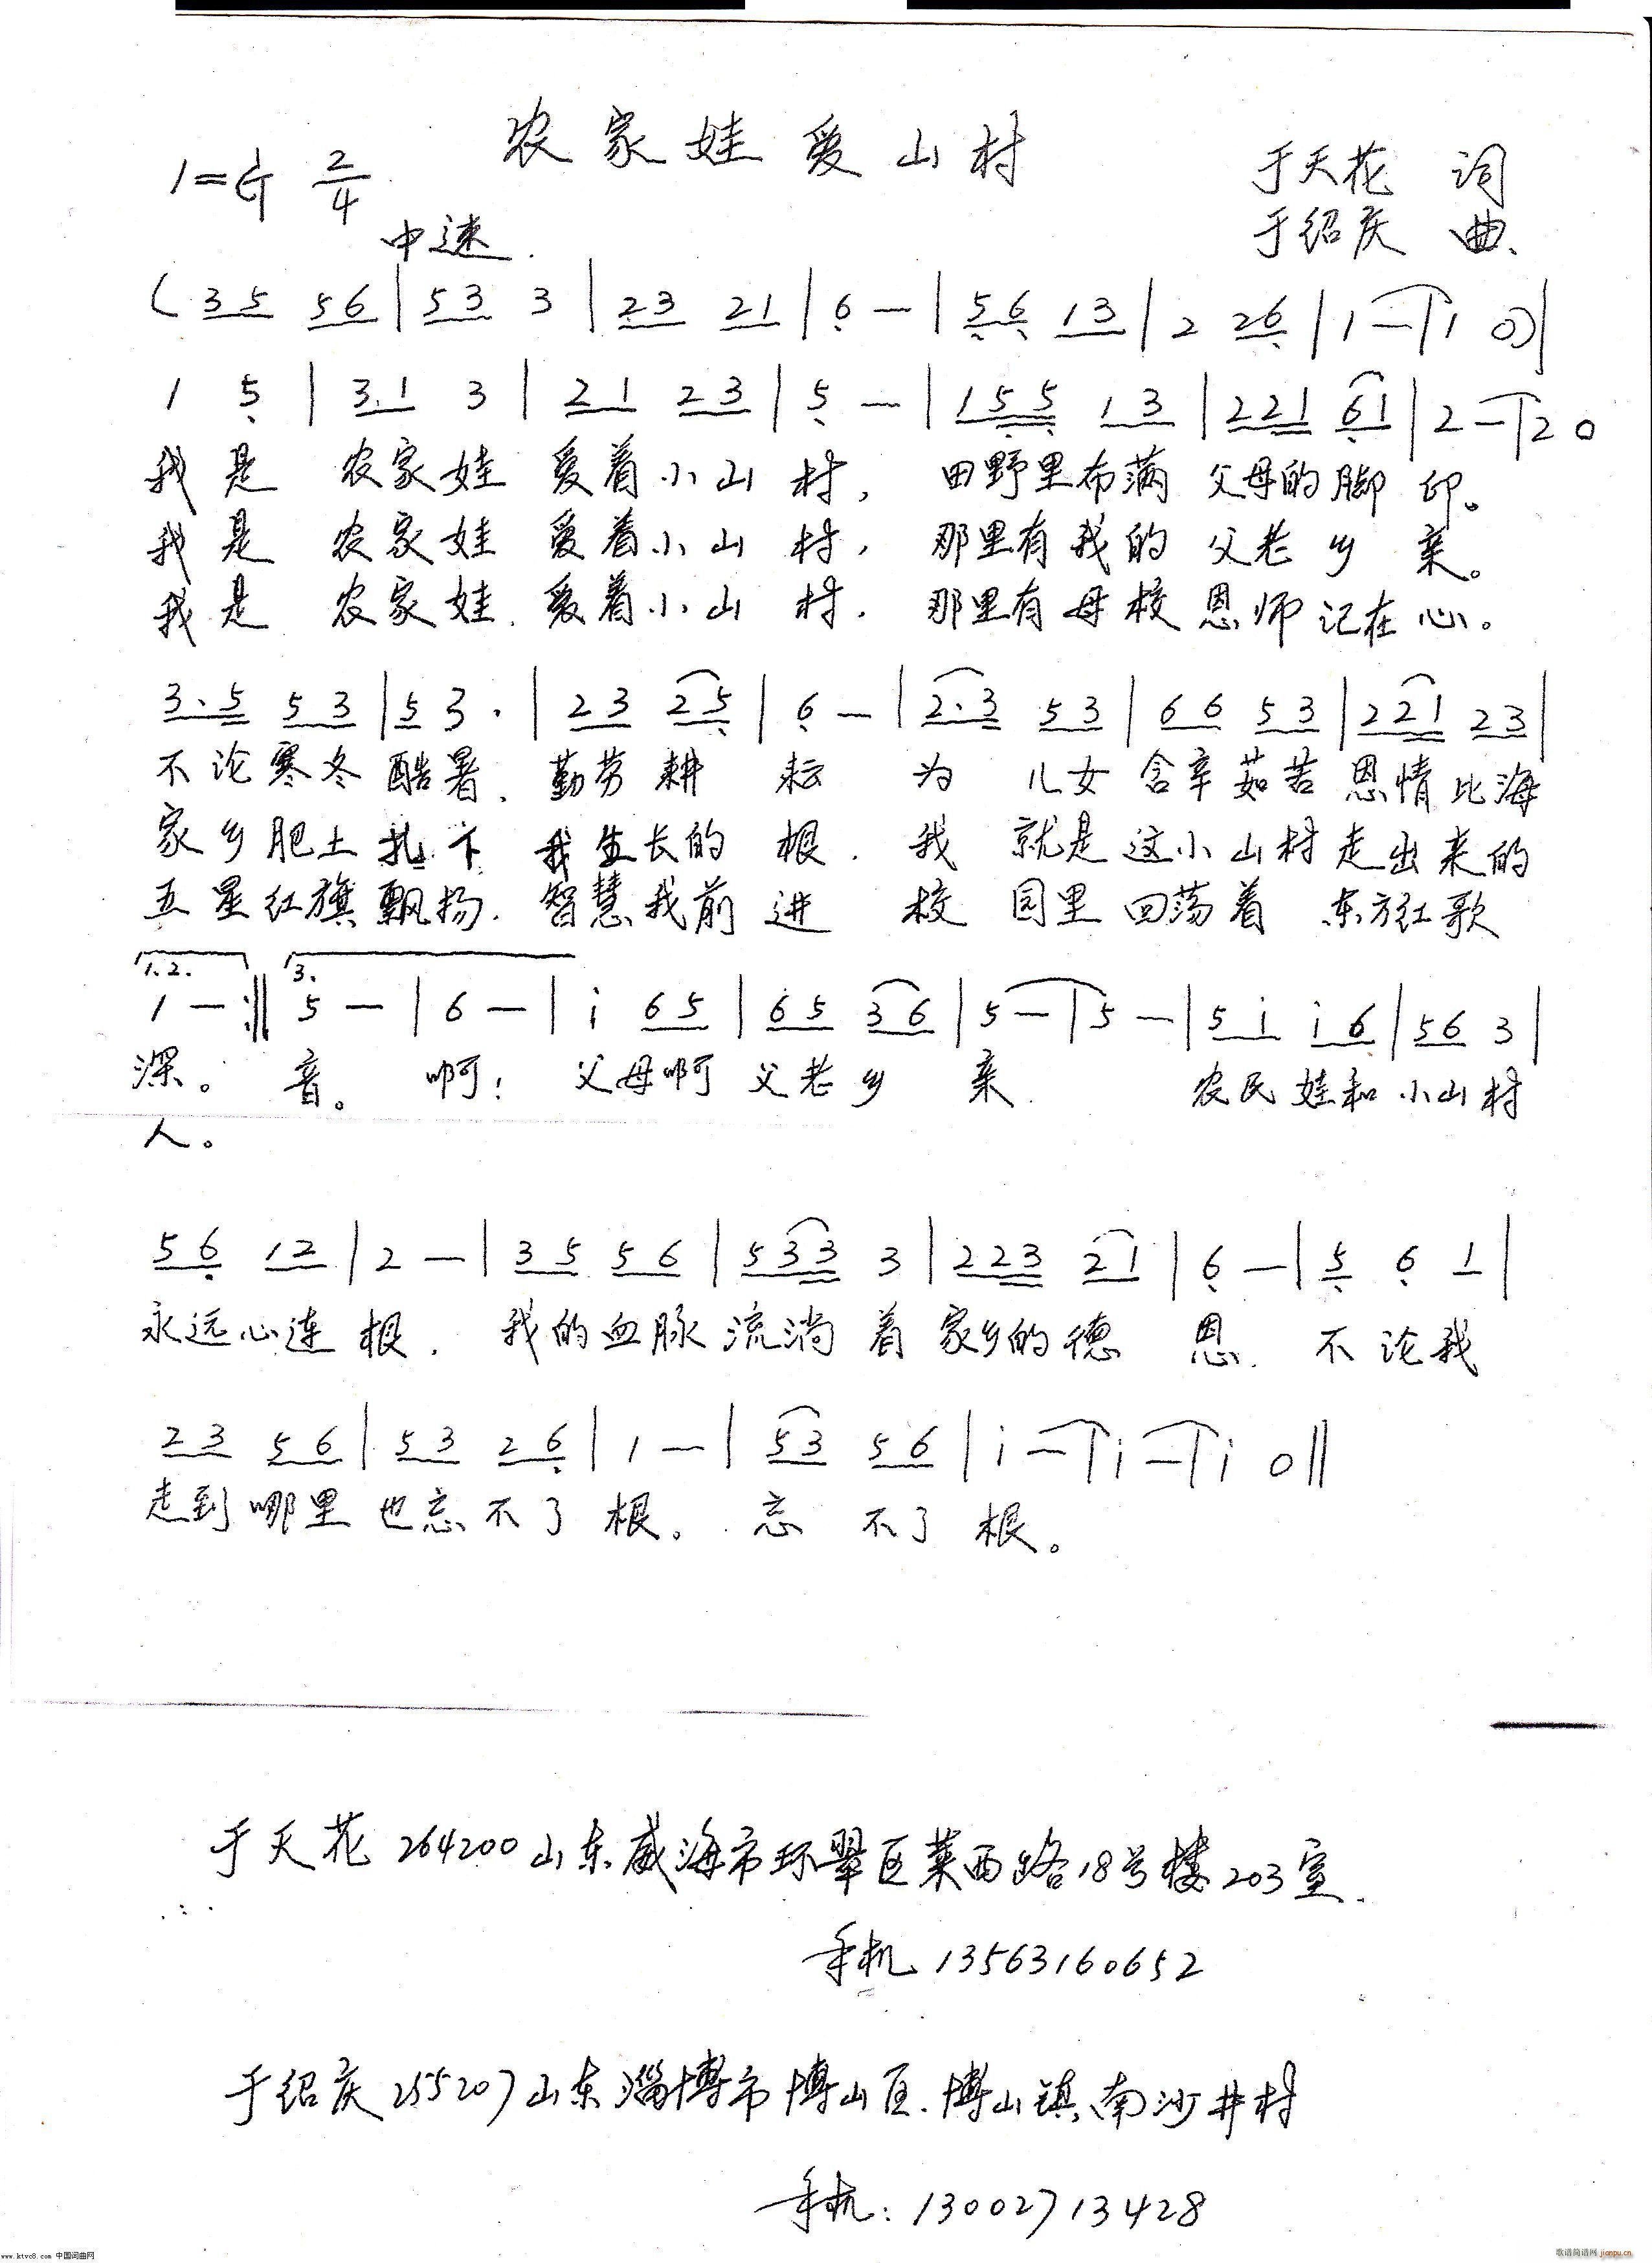 农家娃爱山村
1=G 2/4
于天花 词
中速.
于绍庆 曲、
( 3 5 5 6 | 5 3 3 | 2 3 2 1 | 6 — | 5 6 1 3 | 2 2 6 | 1 — | 1 0) |
1 5 | 3. 1 3 | 2 1 2 3 | 5 — | 1 5 5 1 3 | 2 2 1 6 1 | 2 — | 2 0
我是 农家娃 爱着小山村, 田野里布满 父母的脚印。
我是 农家娃 爱着小山村, 那里有我的 父老乡亲。
我是 农家娃. 爱着小山村. 那里有母校恩师记在心。
3. 5 5 3 | 5 3 . | 2 3 2 5 | 6 — | 2. 3 5 3 | 6 6 5 3 | 2 2 1 2 3 |
不论寒冬酷暑. 勤劳耕耘 为儿女含辛茹苦恩情比海
家乡肥土扎下 我生长的根. 我就是这小山村走出来的
五星红旗飘扬. 智慧我前进 校园里回荡着 东方红歌
1.2. 3.
1 — :‖ 5 — | 6 — | i 6 5 | 6 5 3 6 | 5 — | 5 — | 5 i i 6 | 5 6 3 |
深。 音。 啊! 父母啊父老乡亲. 农民娃和小山村
人。
5 6 1 2 | 2 — | 3 5 5 6 | 5 3 3 3 | 2 2 3 2 1 | 6 — | 5 6 1 |
永远心连根. 我的血脉流淌着家乡的德恩. 不论我
2 3 5 6 | 5 3 2 6 | 1 — | 5 3 5 6 | i — | i — | i 0 ‖
走到哪里也忘不了根。忘不了根。
于天花 264200山东威海市环翠区莱西路18号楼203室.
手机 13563160652
于绍庆255207山东淄博市博山区.博山镇南沙井村
手机: 13002713428
www.ktvc8.com 中国词曲网
歌谱简谱网 jianpu.cn